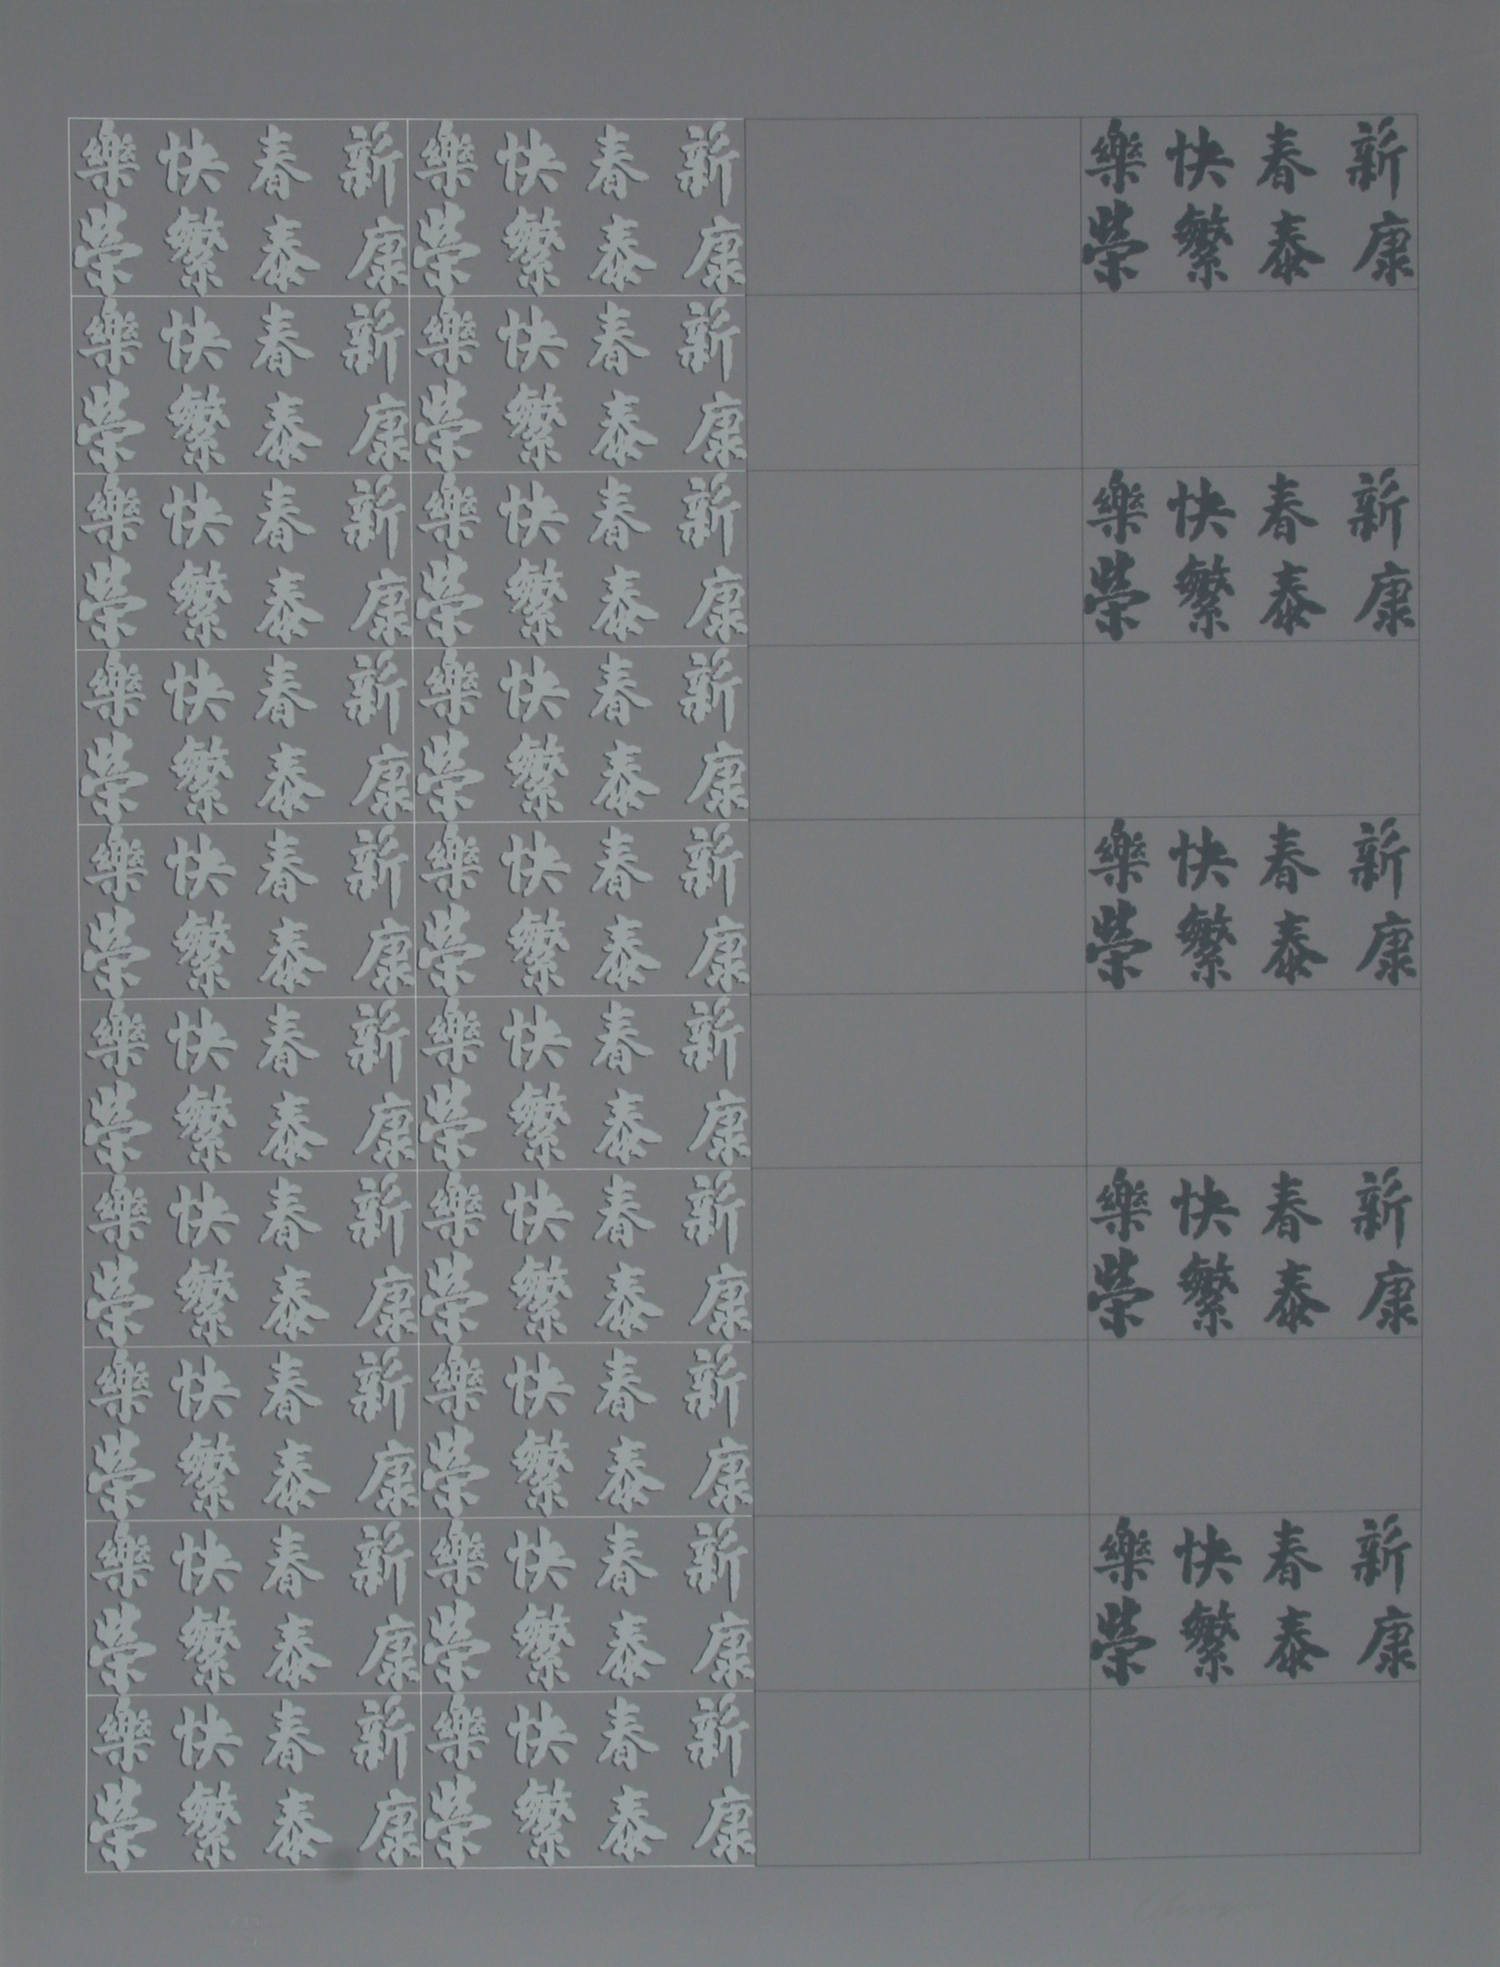 新春快樂 新春快樂 新春快樂
康泰繁榮 康泰繁榮 康泰繁榮
新春快樂 新春快樂
康泰繁榮 康泰繁榮
新春快樂 新春快樂 新春快樂
康泰繁榮 康泰繁榮 康泰繁榮
新春快樂 新春快樂
康泰繁榮 康泰繁榮
新春快樂 新春快樂 新春快樂
康泰繁榮 康泰繁榮 康泰繁榮
新春快樂 新春快樂
康泰繁榮 康泰繁榮
新春快樂 新春快樂 新春快樂
康泰繁榮 康泰繁榮 康泰繁榮
新春快樂 新春快樂
康泰繁榮 康泰繁榮
新春快樂 新春快樂 新春快樂
康泰繁榮 康泰繁榮 康泰繁榮
新春快樂 新春快樂
康泰繁榮 康泰繁榮